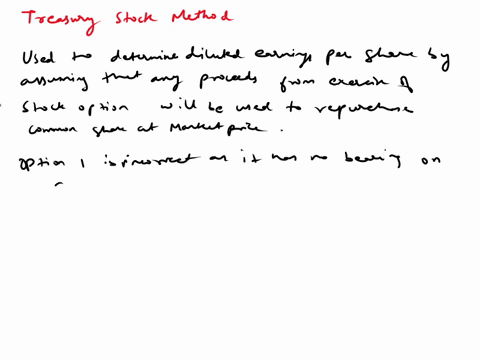 Treasury Stock Method
Used to determine diluted earnings per share by
assuming that any proceeds from exercise of
stock option will be used to repurchase
common share at market price.
option 1 is incorrect as it has no bearing on